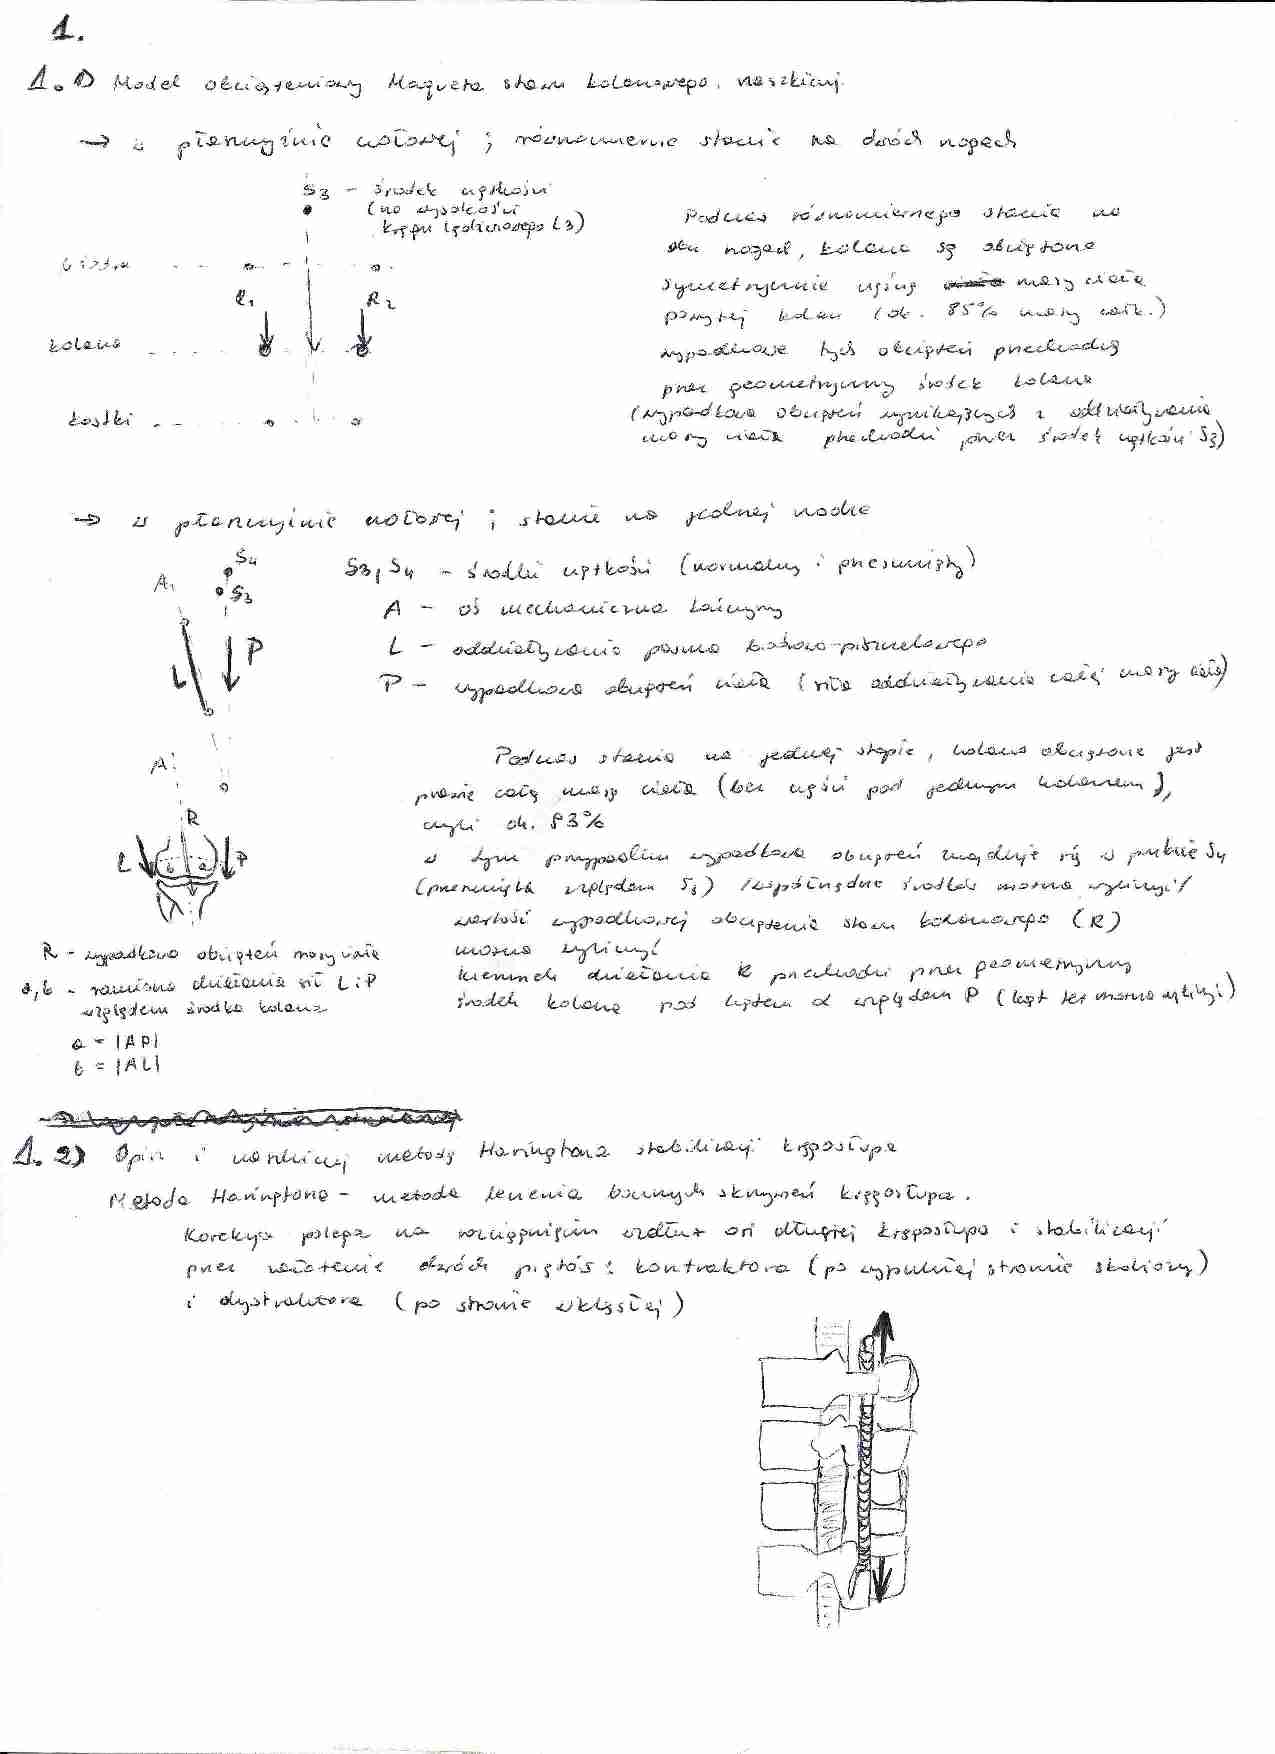 1.
1. 1) Model obciążeniowy Maqueta stawu kolanowego, naszkicuj.
→ w płaszczyźnie czołowej ; równomierne stanie na dwóch nogach
S3 - środek ciężkości
(na wysokości
kręgu lędźwiowego L3)
biodra
R1 R2
kolana
kostki
Podczas równomiernego stania na
obu nogach, kolana są obciążone
symetrycznie częścią masy ciała
powyżej kolan (ok. 85% masy całk.)
wypadkowe tych obciążeń przechodzą
przez geometryczny środek kolana
(wypadkowa obciążeń wynikających z oddziaływania
masy ciała przechodzi przez środek ciężkości S3)
→ w płaszczyźnie czołowej ; stanie na jednej nodze
S4
A,
S3
P
L
S3, S4 - środki ciężkości (normalny i przesunięty)
A - oś mechaniczna kończyny
L - oddziaływanie pasma biodrowo-piszczelowego
P - wypadkowa obciążeń ciała (siła oddziaływania całej masy ciała)
A
R
L P
Podczas stania na jednej stopie, kolano obciążone jest
prawie całą masą ciała (bez części pod jednym kolanem),
czyli ok. 93%
w tym przypadku wypadkowa obciążeń znajduje się w punkcie S4
(przesunięta względem S3) /współrzędne środków można wyliczyć/
wartość wypadkowej obciążenia stawu kolanowego (R)
można wyliczyć
kierunek działania R przechodzi przez geometryczny
środek kolana pod kątem α względem P (kąt też można wyliczyć)
R - wypadkowa obciążeń masy ciała
a, b - ramiona działania sił L i P
względem środka kolana
a = |AP|
b = |AL|
1. 2) Opis i naszkicuj metody Harringtona stabilizacji kręgosłupa
Metoda Harringtona - metoda leczenia bocznych skrzywień kręgosłupa.
Korekcja polega na rozciągnięciu wzdłuż osi długiej kręgosłupa i stabilizacji
przez założenie dwóch prętów: kontraktora (po wypukłej stronie skoliozy)
i dystraktora (po stronie wklęsłej)